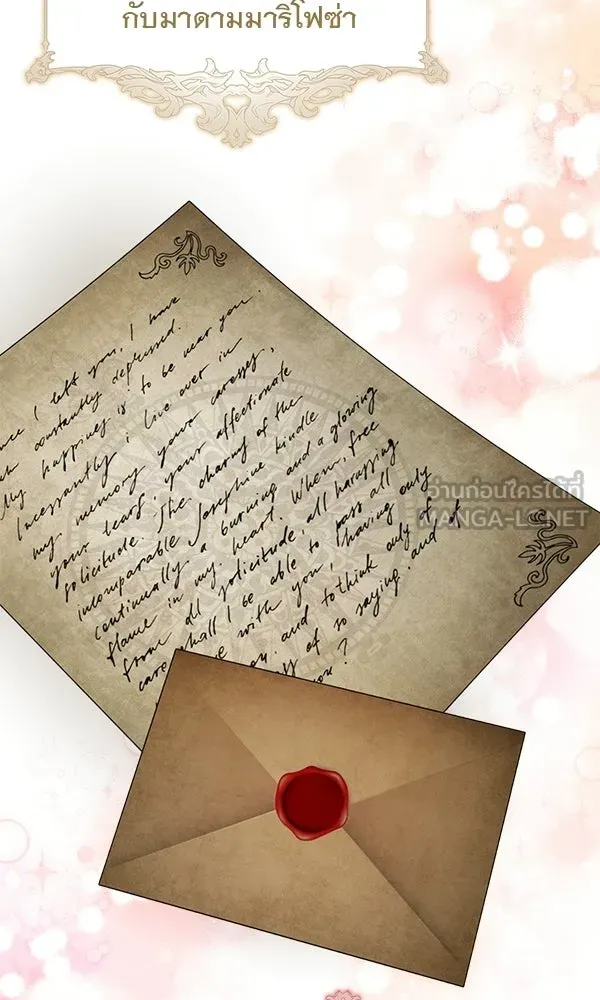 กับมาดามมาริโฟซ่า
I left you, I have
constantly depressed.
My happiness is to be near you.
Incessantly i live over in
my memory your caresses,
your tears, your affectionate
solicitude. The charms of the
incomparable Josephine kindle
continually a burning and a glowing
flame in my heart. When, free
from all solicitude, all harassing
care, shall I be able to pass all
with you, having only
you, and to think only of
of so saying, and of
you?
อ่านก่อนใครได้ที่
MANGA-L NET